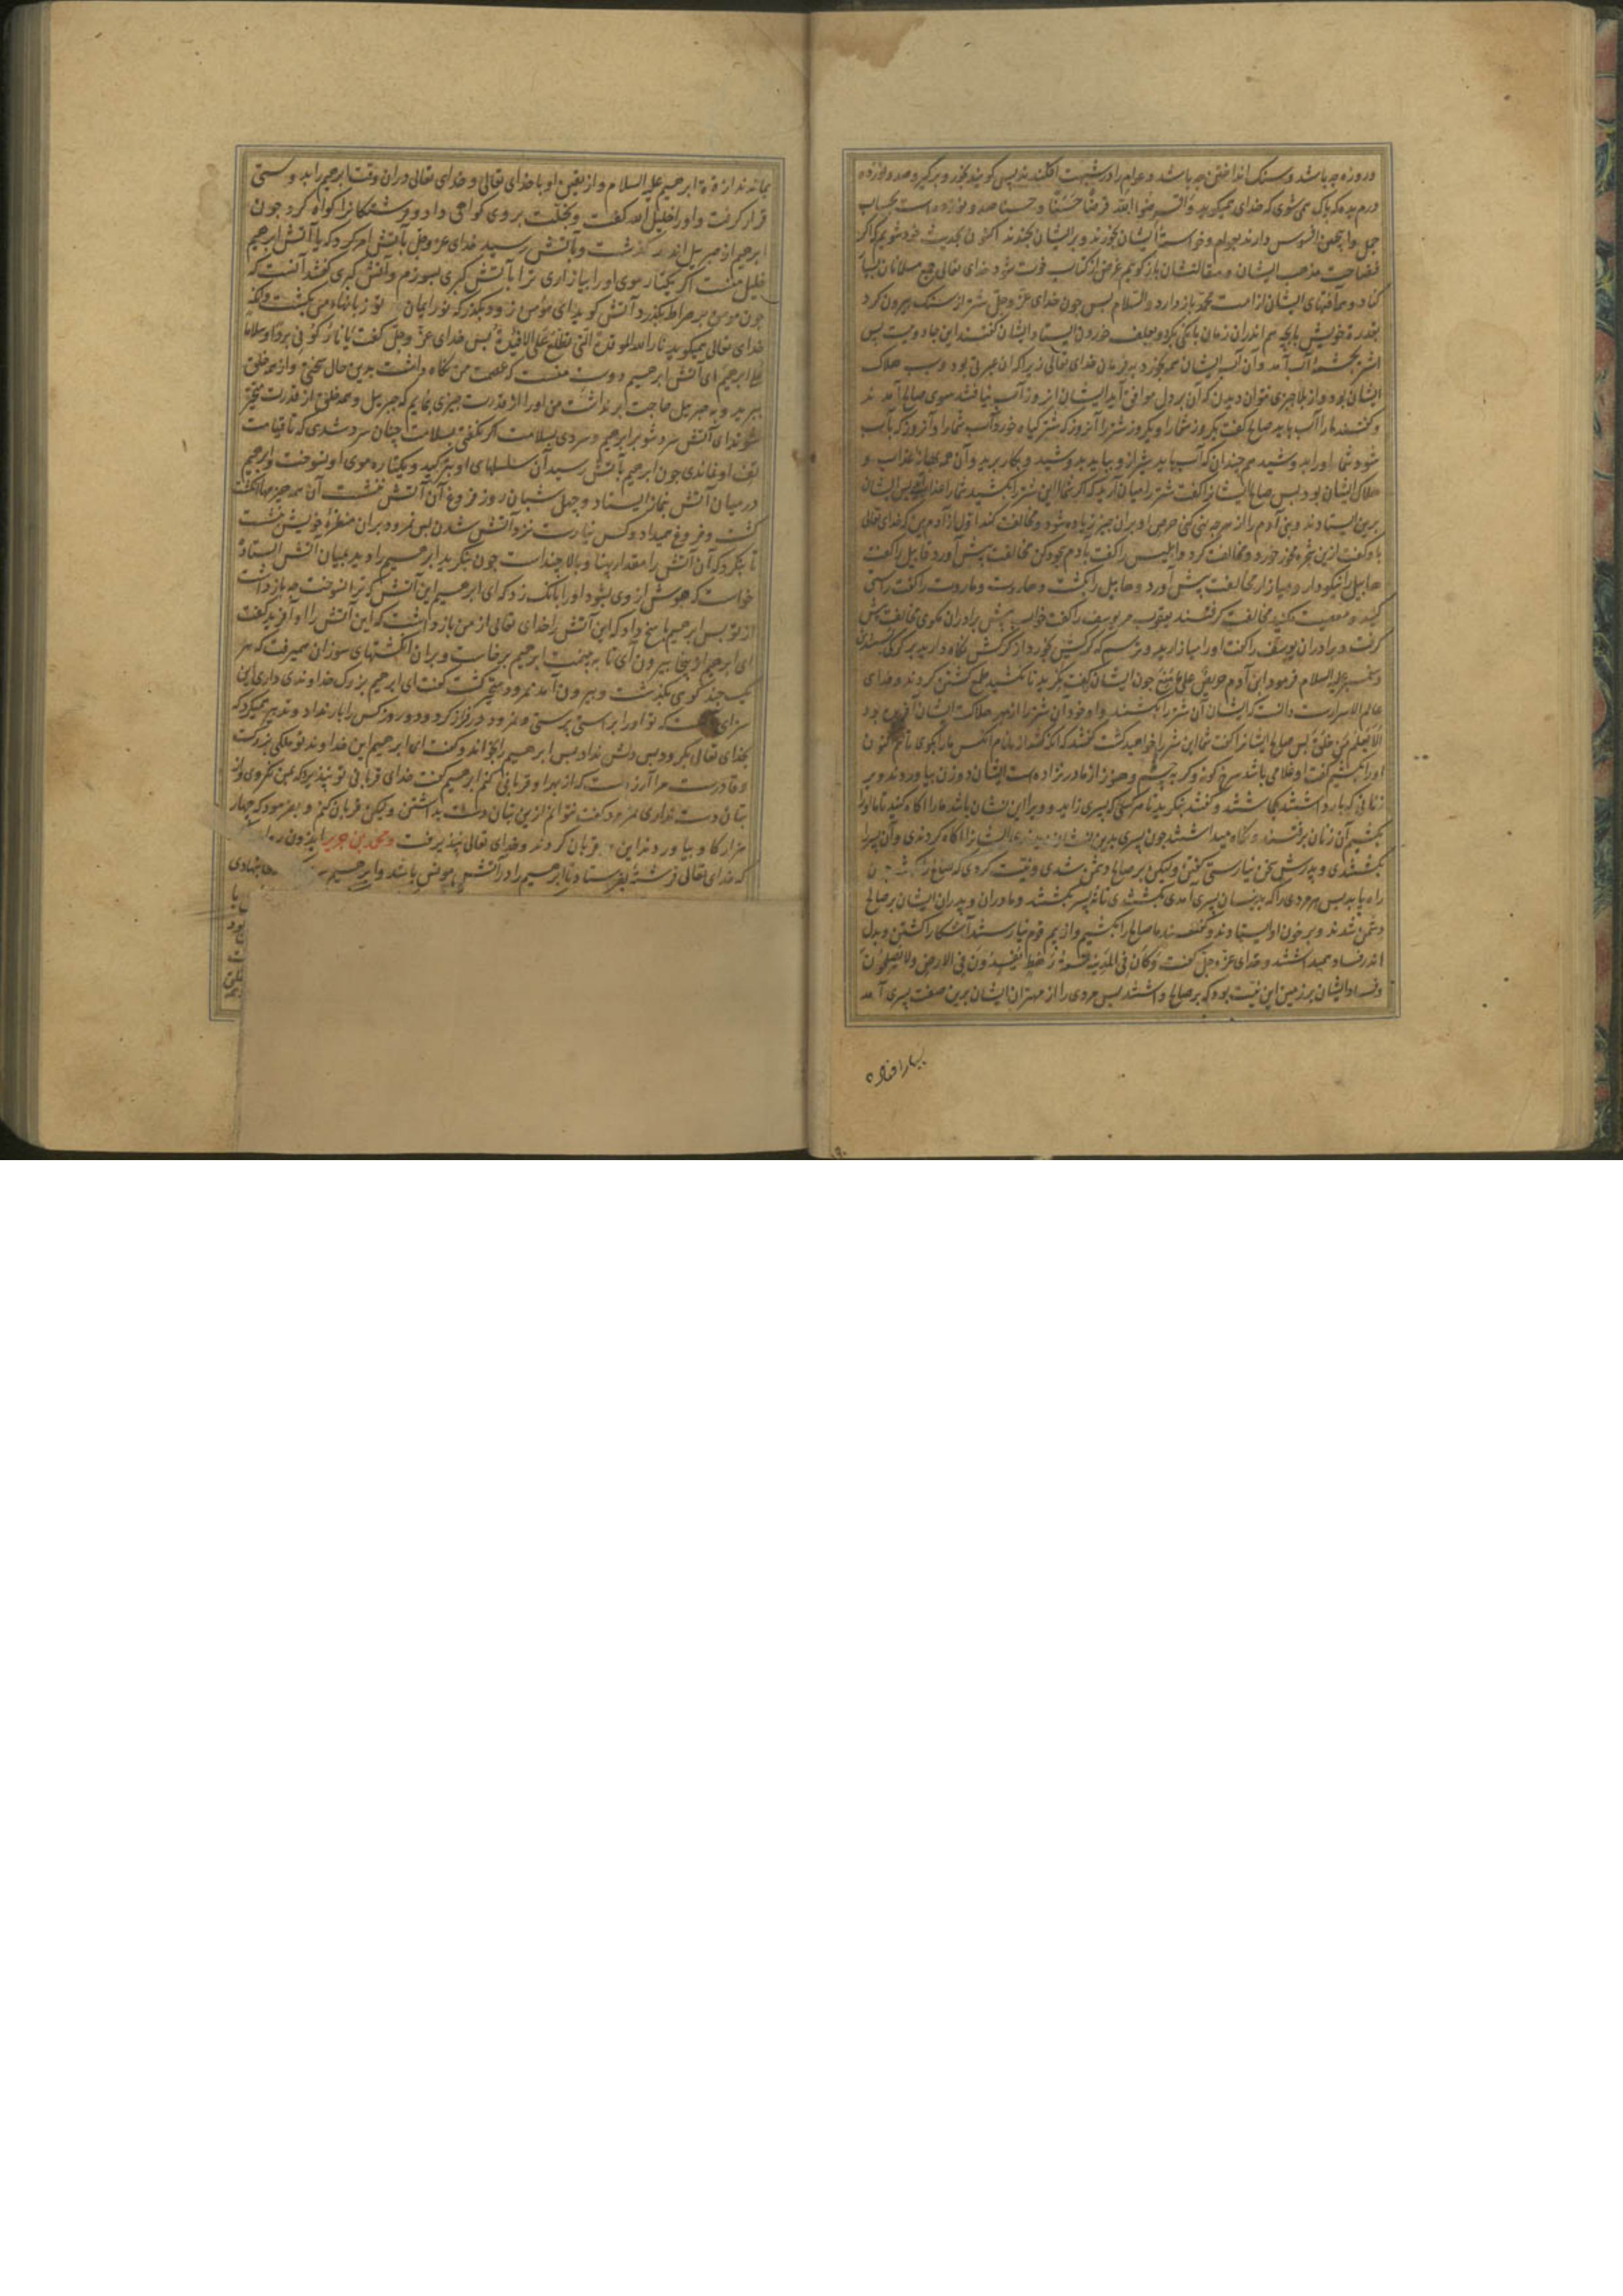 دروزه چه باشد و سنک انداختن چه باشد و عوام را در شبهت افکنند پس کویند بخور و برکیر و صد و نوزده
درم بده که پاک می شوی که خدای میکوید و اقرضوا الله قرضا حسنا و حسنا صد و نوزده است بحساب
جمل و این افسوس دارند بعوام و خواسته ایشان بخورند و بر ایشان بخندند اکنون بحدیث خود شویم که اکر
فضاحت مذهب ایشان و مقالتشان باز کویم غرض از کتاب فوت شود خدای تعالی جمیع مسلمانان را
کناد و آفتهای ایشان از امت محمد باز دارد والسلام پس چون خدای عز و جل شتر از سنک بیرون کرد
بقدرة خویش با بچه هم اندر ان زمان بانکی بکرد و بعلف خوردن ایستاد ایشان کفتند این جادویست پس
اشتر بچشمه آب آمد و آن آب ایشان همه بخورد بفرمان خدای تعالی زیرا که ان عبرتی بود و سبب هلاک
ایشان بود و از بلا چیزی نتوان دیدن که آن بر دل موافق آید ایشان انروز آب نیافتند سوی صالح آمدند
و کفتند ما را آب باید صالح کفت یکروز شما را و یکروز شتر را آنروز که شتر کیاه خورد آب شما را و آنروز که باب
شود شما او را بدوشید هم چندان که آب باید شیر از و بیاید بدوشید و بکار برید و آن همه بهانه عذاب و
هلاک ایشان بود پس صالح ایشانرا کفت شتر را میان آرید که اکر شما این شتر را بکشید شما را عذاب پس ایشان
برین ایستادند و بنی آدم را از هر چه نهی کنی حرص او بران چیز زیاده شود و مخالفت کند اول از آدم بین که خدای تعالی
با او کفت ازین شجره مخور خورد و مخالفت کرد و ابلیس را کفت بآدم سجود کن مخالفت پیش آورد قابیل را کفت
هابیل را نیکو دار و میازار مخالفت پیش آورد و هابیل را بکشت و هاروت و ماروت را کفت راستی
کنید و معصیت مکنید مخالفت کرفتند یعقوب مر یوسف را کفت خواب پیش برادران مکوی مخالفت پیش
کرفت و برادران یوسف را کفت او را میازارید و ترسم که کرکش بخورد از کرکش نکاه دارید
و پیغمبر علیه السلام فرمود ابن آدم حریص علی ما منع چون ایشان کفت بنکرید تا نکشید طمع کشتن کردند و خدای
عالم الاسرارست دانست که ایشان آن شتر را بکشند و او خود ان شتر را از بهر هلاکت ایشان آفریده بود
الا یعلم من خلق پس صالح ایشانرا کفت شما این شتر را خواهید کشت کفتند که انکه کشد از ما نام انکس ما را بکوی تا هم اکنون
او را بکشیم کفت او غلامی باشد سرخ کونه و کربه چشم و هنوز از مادر نزاده است ایشان دو زن بیاوردند و بر
زنانی که باردار شدند بکاشتند و کفتند بنکرید تا هر کس که پسری زاید و ویرا این نشان باشد ما را اکاه کنید تا ما او را
بکشیم آن زنان برفتند و نکاه میداشتند چون پسری بدین نشان ایشانرا آکاه کردندی و آن پسر را
بکشتندی و پدرش سخن نیارستی کفتن ولیکن بر صالح دشمن شدی و نیت کردی که صالح را
راه یابد پس هر مردی را که بدینسان پسری آمدی بکشتندی تا نه پسر بکشتند و مادران و پدران ایشان بر صالح
دشمن شدند و بر خون او ایستادند و کفتند ما صالح را بکشیم و از بیم قوم نیارستند آشکارا کشتن و بدل
اندر فساد میداشتند و خدای عز و جل کفت و کان فی المدینه تسعة رهط یفسدون فی الارض و لا یصلحون
و فساد ایشان بر زمین این نیت بود که بر صالح داشتند پس مردی را از مهتران ایشان برین صفت پسری آمد
بماندند از ابرهیم علیه السلام و از یقین او با خدای تعالی و خدای تعالی در ان وقت ابرهیم را بدوستی
قرار کرفت و او را خلیل الله کفت و بخلت بر وی کواهی داد و فرشتکانرا کواه کرد چون
ابرهیم از جبریل اندر کذشت و بآتش رسید خدای عز و جل بآتش امر کرد که یا آتش ابرهیم
خلیل منست اکر یکتار موی او را بیازاری ترا بآتش کبری بسوزم و آتش کبری کفتند آنست که
چون مؤمن بر صراط بکذرد آتش کوید ای مؤمن زود بکذر که نور ایمان تو زبانهاء من بکشت
خدای تعالی میکوید نار الله الموقدة التی تطلع علی الافئدة پس خدای عز و جل کفت یا نار کونی بردا و سلاما
علی ابرهیم ای آتش ابرهیم دوست منست که عصمت من نکاه داشت بدین حال سختی و از همه خلق
ببرید و به جبریل حاجت برنداشت من او را از قدرت چیزی نمایم که جبریل و همه خلق از قدرت متحیر
شوند ای آتش سرد شو بر ابرهیم و سردی بسلامت اکر نکفتی بسلامت چنان سرد شدی که تا قیامت
تف او نماندی چون ابرهیم بآتش رسید آن سلسلهای او بترکید و یکتاره موی او نسوخت و ابرهیم
در میان آتش بنماز ایستاد و چهل شبان روز فروغ آن آتش ننشست آن همه چیزها انکشت
کشت و فروغ میداد و کس نیارست نزد آتش شدن پس نمرود بران منظره خویش نشست
تا بنکرد که آن آتش را مقدار پهنا و بالا چنداست چون بنکرید ابرهیم را دید بمیان آتش ایستاده
خواست که هوش از وی بشود او را بانک زد که ای ابرهیم این آتش که ترا نسوخت چه بازداشت
از تو پس ابرهیم پاسخ داد که این آتش را خدای تعالی از من بازداشت که این آتش را او آفرید کفت
ای ابرهیم از آنجا بیرون آی تا به بینمت ابرهیم برخاست و بران انکشتهای سوزان همیرفت که هر
یک چند کوی بکذشت و بیرون آمد نمرود متحیر کشت کفت ای ابرهیم بزرک خداوندی داری این
سزای که تو او را براستی پرستی و نمرود در فراز کرد و دو روز کس را بار نداد و تدبیر همیکرد که
بخدای تعالی بکرود پس دلش نداد پس ابرهیم را بخواند و کفت ای ابرهیم این خداوند تو ملکی بزرکست
و قادرست مرا آرزوست که از بهر او قربانی کنم ابرهیم کفت خدای قربانی تو نپذیرد که بمن نکروی و از
بتان دست نداری نمرود کفت نتوانم ازین بتان دست بداشتن ولیکن قربان کنم و بفرمود که چهار
هزار کاو بیاوردند قربان کردند و خدای تعالی نپذیرفت و محمد بن جریر ایدون
که خدای تعالی فرشته بفرستاد تا ابرهیم را در آتش مونس باشد و ابرهیم